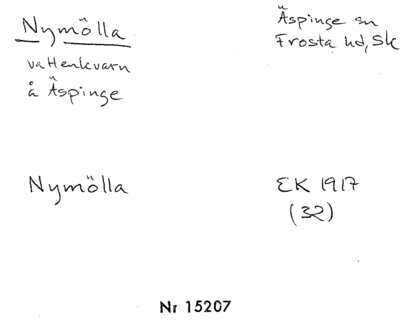 Nymölla
Äspinge sn
Frosta hd, Sk
vattenkvarn
å Äspinge
Nymölla
EK 1917
(32)
Nr 15207